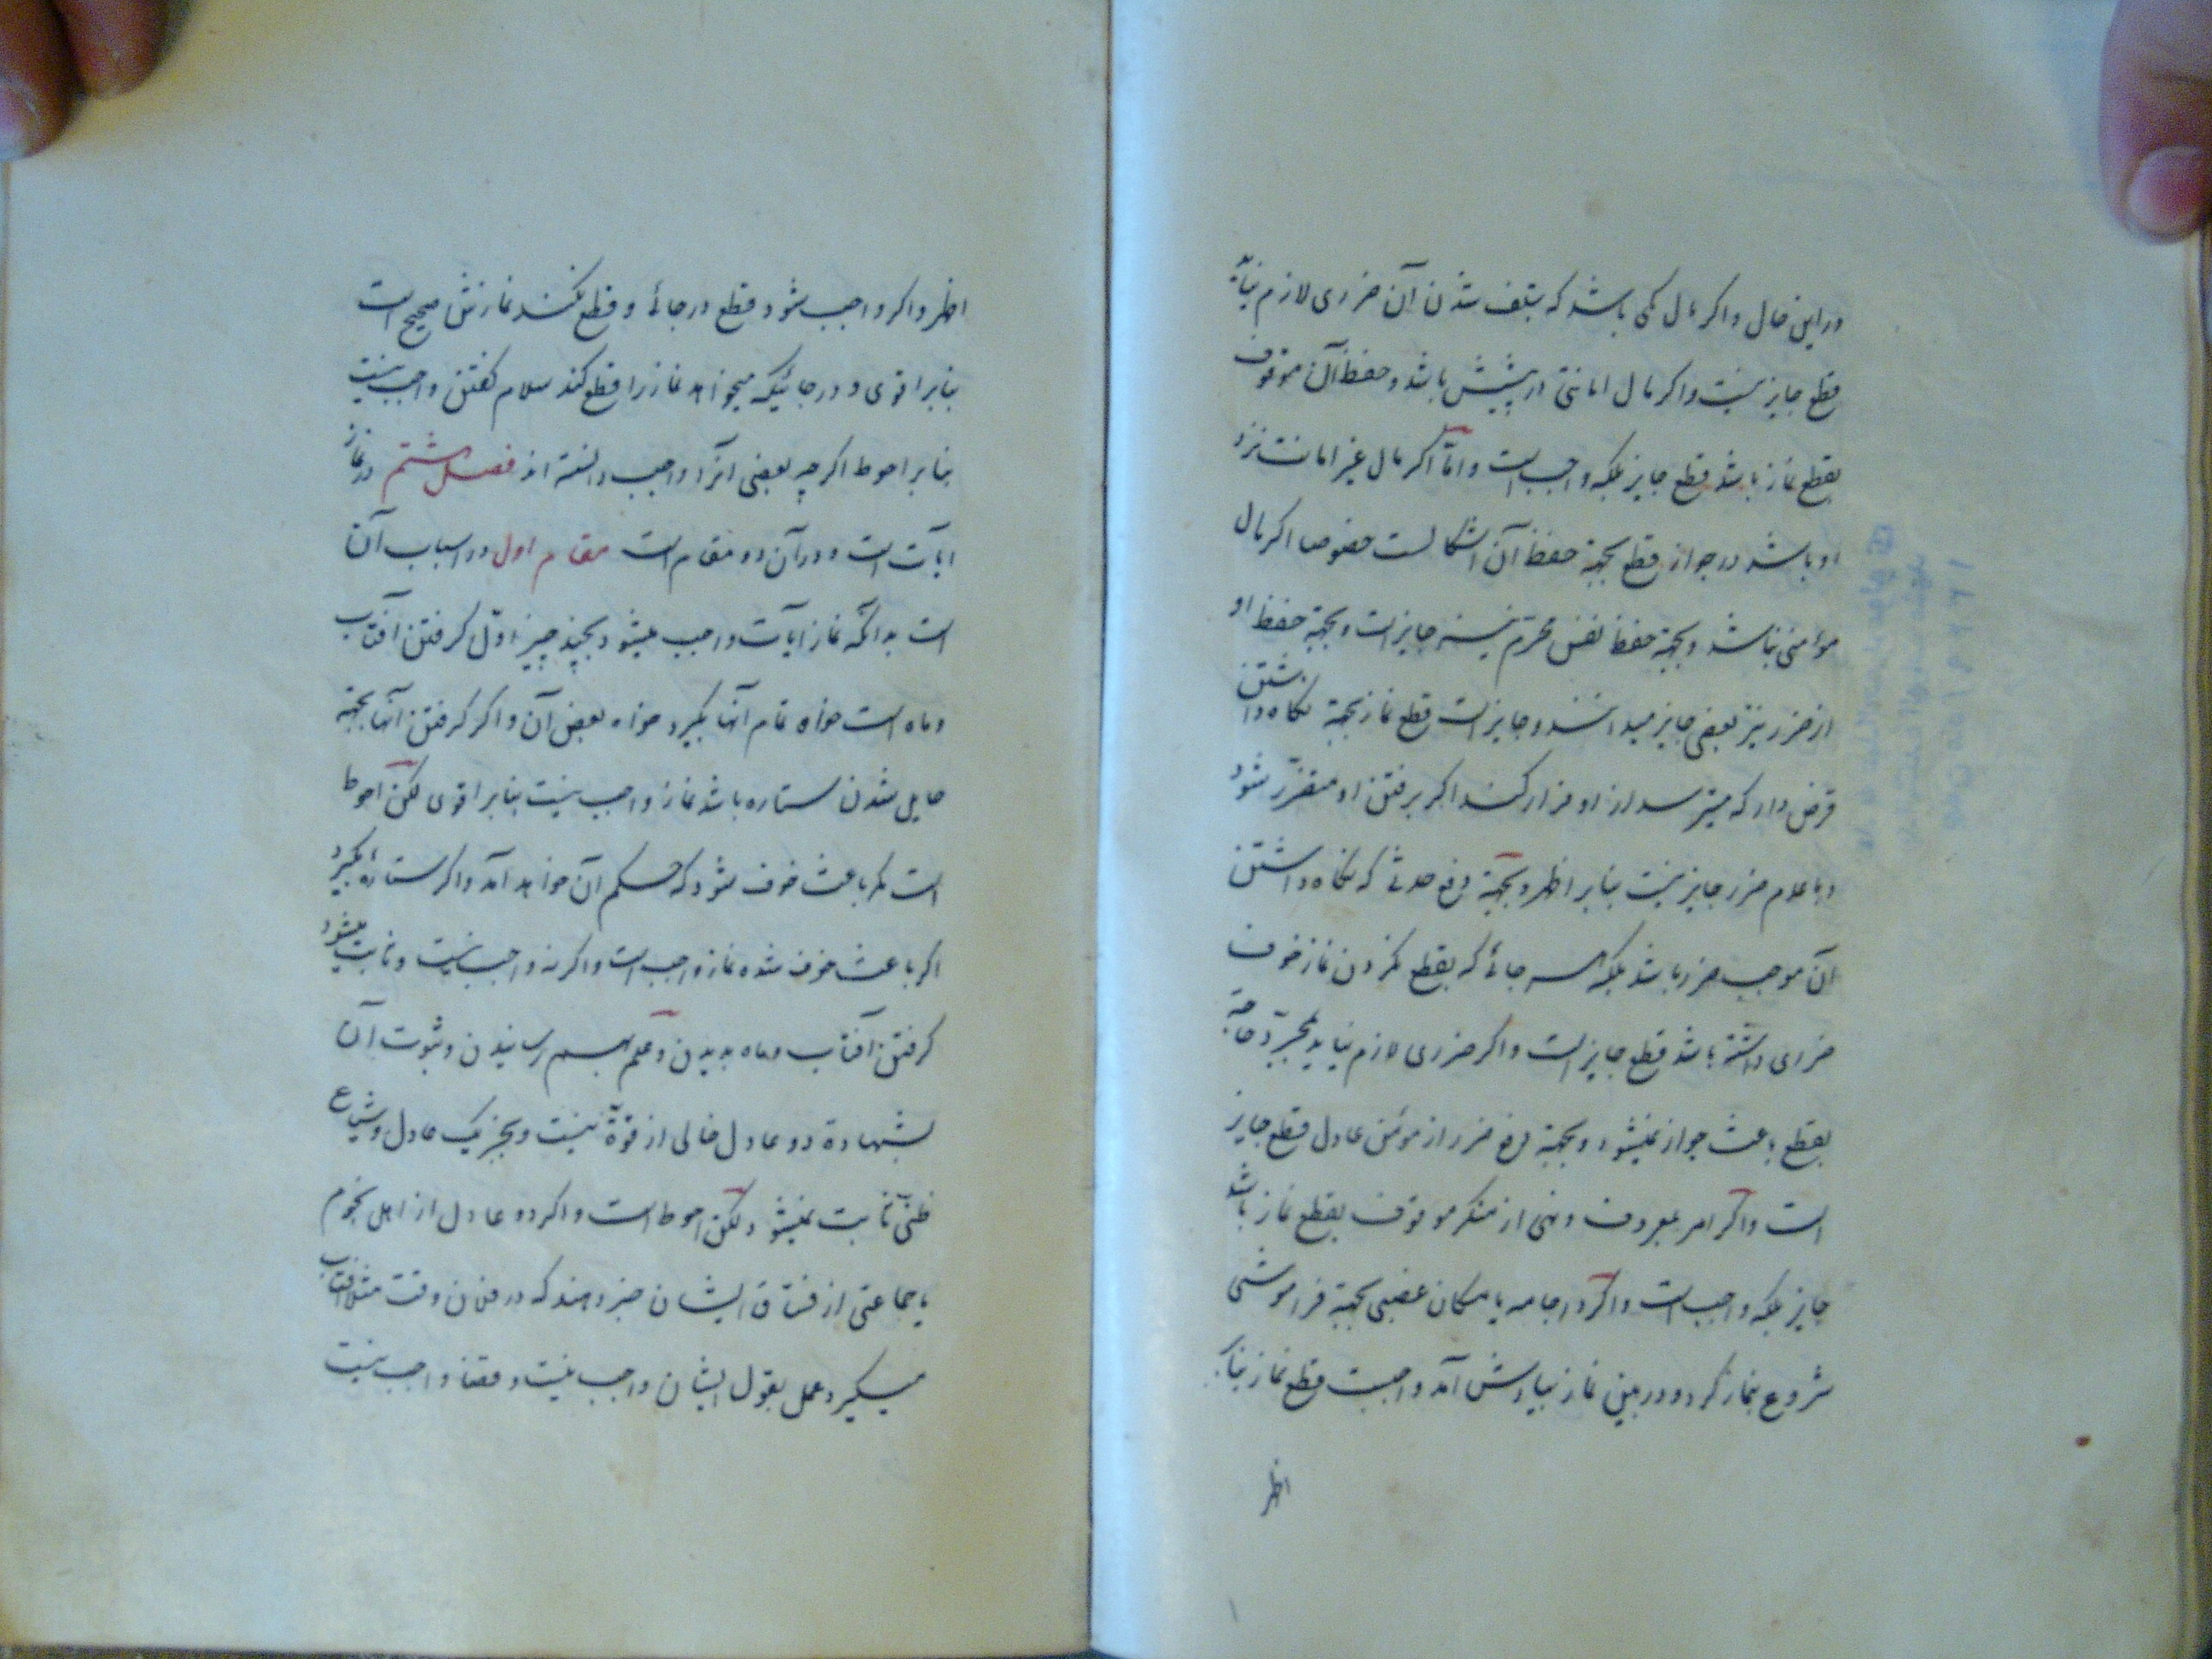 در این حال و اکر مال کمی باشد که بتلف شدن آن ضرری لازم نیاید
قطع جایز نیست و اکر مال امانتی در پیشش باشد و حفظ آن موقوف
بقطع نماز باشد قطع جایز بلکه واجب است و امّا اکر مال غیر امانت نزد
او باشد در جواز قطع بجهة حفظ آن اشکالست خصوصا اکر مال
مؤمنی نباشد و بجهة حفظ نفس محترم نیز جایز است و بجهة حفظ او
از ضرر نیز بعضی جایز میدانند و جایز است قطع نماز بجهة نکاه داشتن
قرض دار که میترسد از او فرار کند اکر برفتن او متضرّر شود
و با عدم ضرر جایز نیست بنابر اظهر و بجهة دفع حدثی که نکاه داشتن
آن موجب ضرر باشد بلکه هر جائی که بقطع نکردن نماز خوف
ضرری داشته باشد قطع جایز است و اکر ضرری لازم نیاید مجرّد حاجة
بقطع باعث جواز نمیشود و بجهة دفع ضرر از مومن عادل قطع جایز
است و اکر امر بمعروف و نهی از منکر موقوف بقطع نماز باشد
جایز بلکه واجب است و اکر در جامه یا مکان غصبی بجهة فراموشی
شروع بنماز کرد و در بین نماز بیادش آمد واجبست قطع نماز بنابر
اظهر
اظهر و اکر واجب شود قطع در جائی و قطع نکند نمازش صحیح است
بنابر اقوی و در جائیکه میخواهد نماز را قطع کند سلام کفتن واجب نیست
بنابر احوط اکر چه بعضی آنرا واجب دانسته اند فصل هشتم در نماز
آیات است و در آن دو مقام است مقام اول در اسباب آن
است بدانکه نماز آیات واجب میشود بچند چیز اوّل کرفتن آفتاب
و ماه است خواه تمام آنها بکیرد خواه بعض آن و اکر کرفتن آنها بجهة
حایل شدن ستاره باشد نماز واجب نیست بنابر اقوی لکن احوط
است مکر باعث خوف شود که حکم آن خواهد آمد و اکر ستارهٔ بکیرد
اکر باعث خوف شده نماز واجب است و اکر نه واجب نیست و ثابت میشود
کرفتن آفتاب و ماه بدیدن و علم بهم رسانیدن و ثبوت آن
بشهادة دو عادل خالی از قوّة نیست و بخبر یک عادل و شیاع
ظنّی ثابت نمیشود لکن احوط است و اکر دو عادل از اهل نجوم
یا جماعتی از فسّاق ایشان خبر دهند که در فلان وقت مثلا آفتاب
میکیرد عمل بقول ایشان واجب نیست و قضا واجب نیست